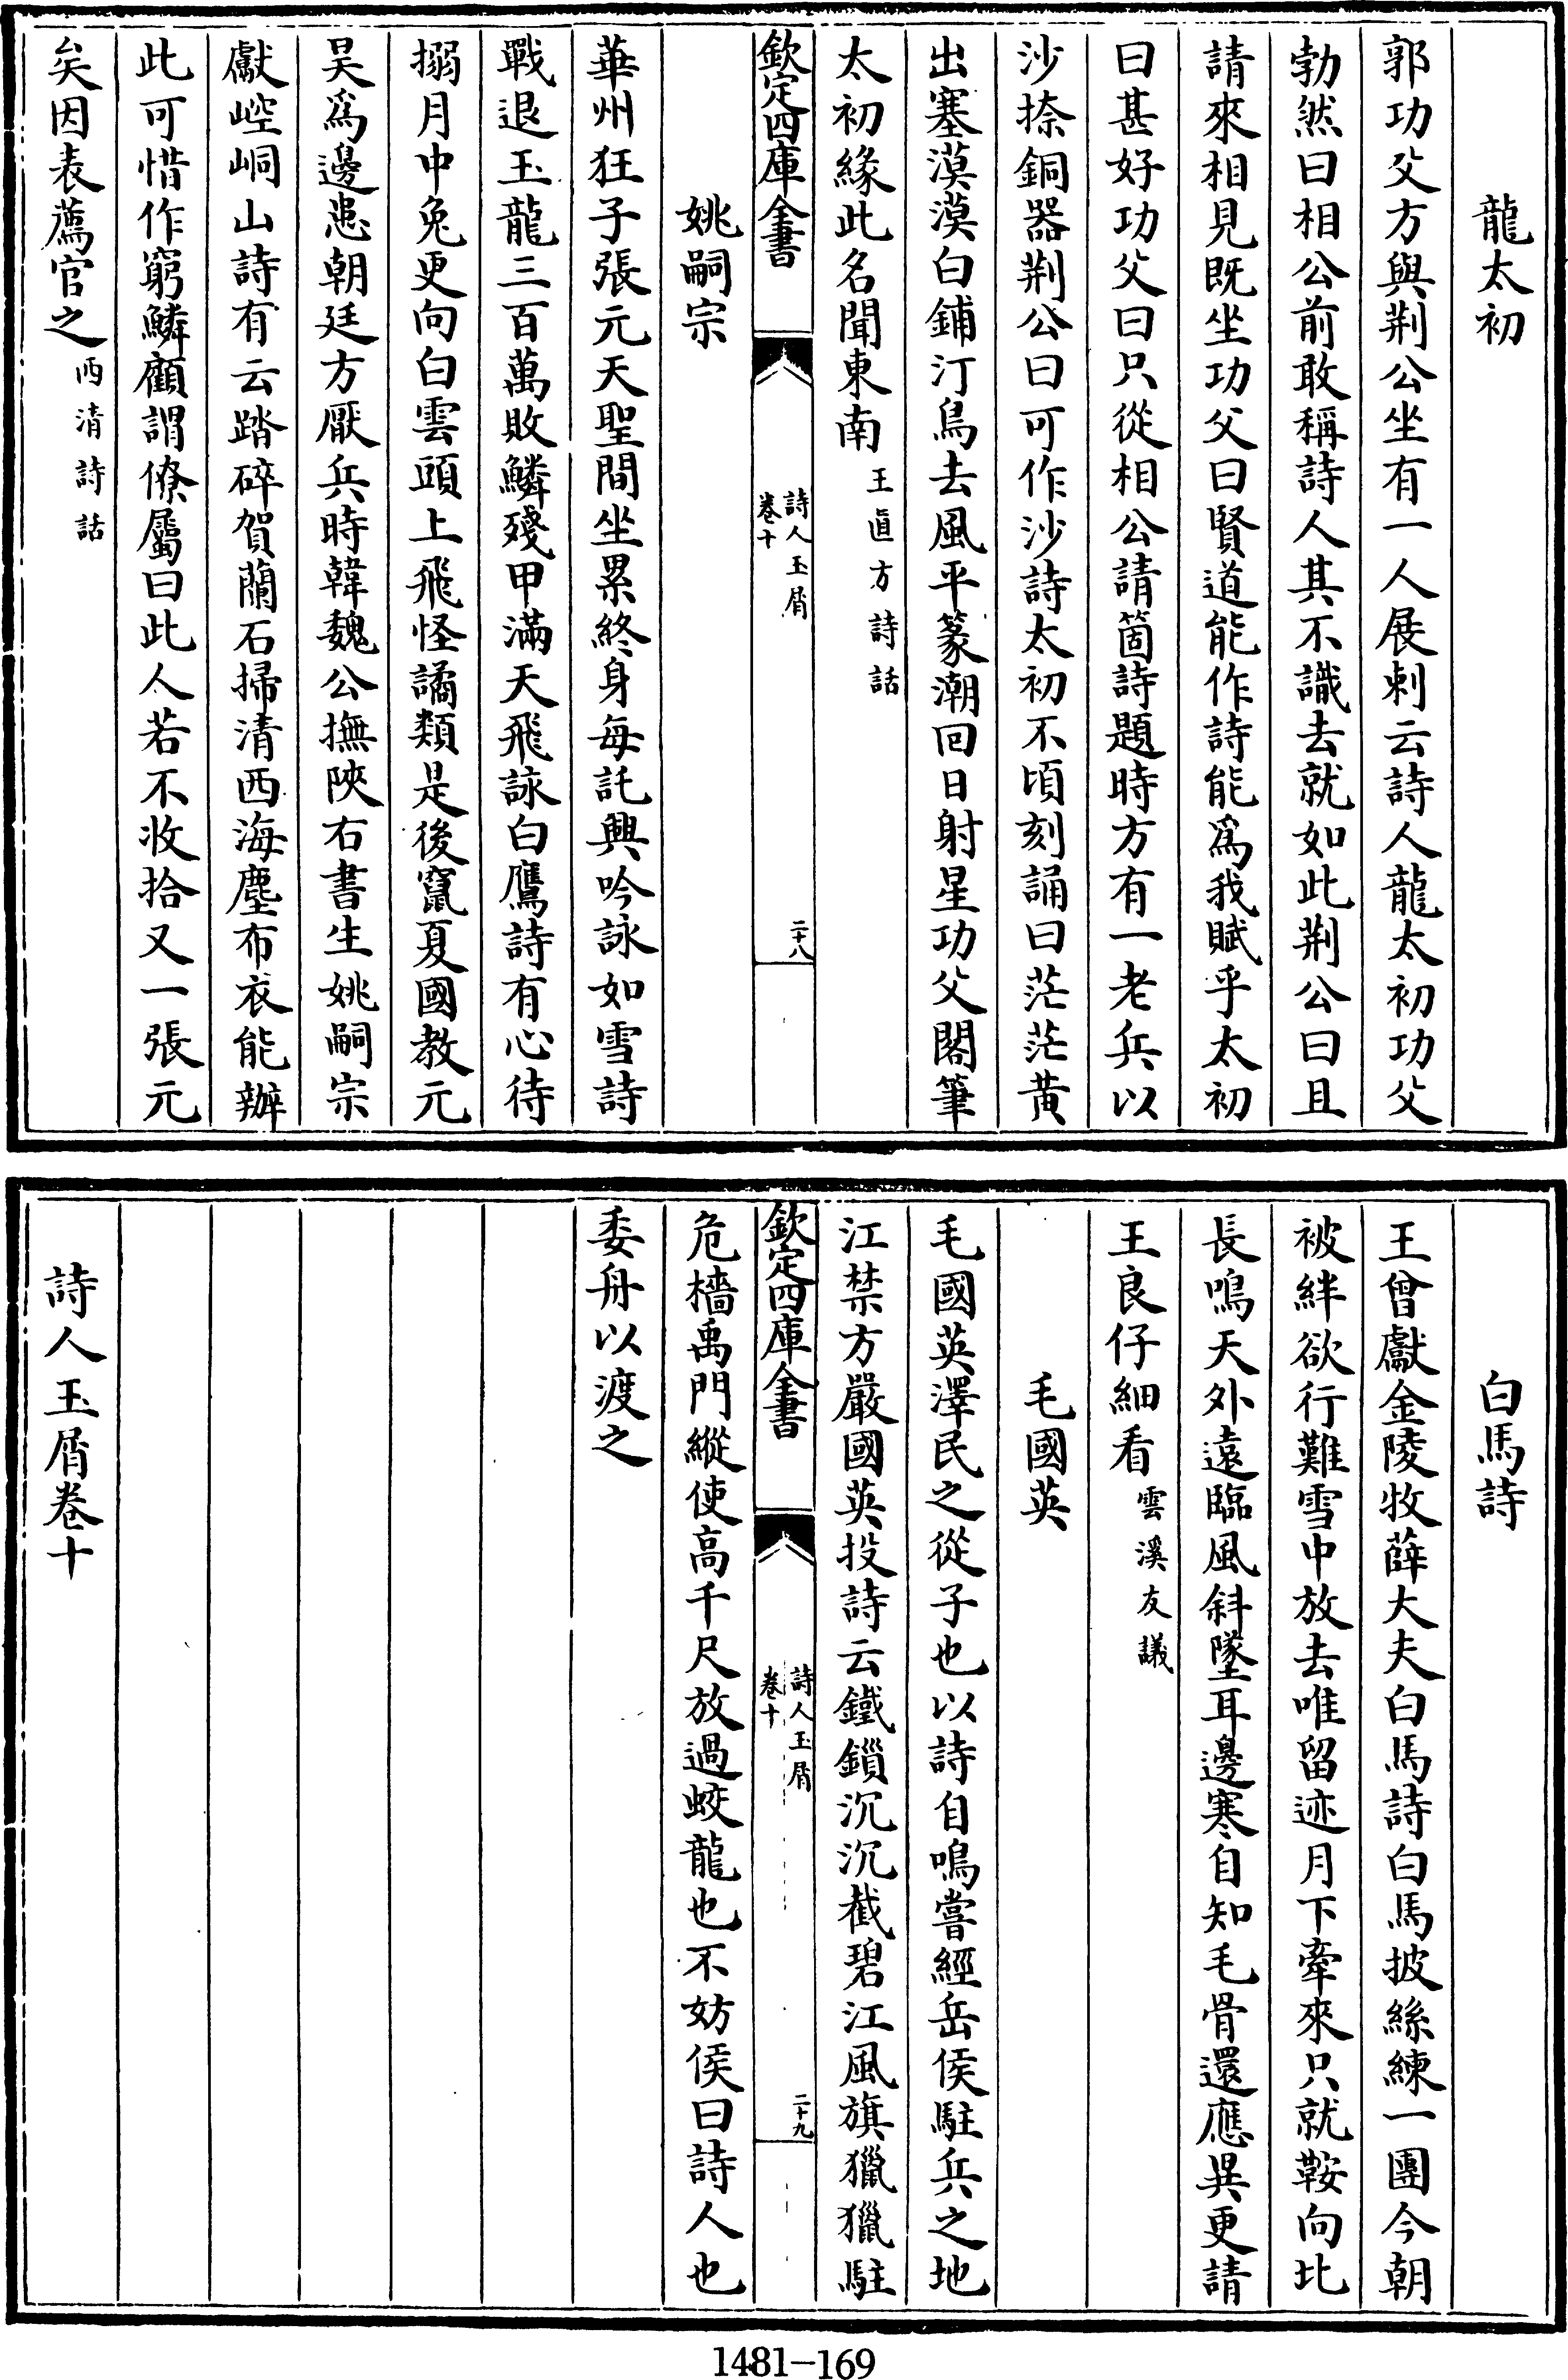 龍太初
郭功父方與荆公坐有一人展刺云詩人龍太初功父
勃然曰相公前敢稱詩人其不識去就如此荆公曰且
請來相見既坐功父曰賢道能作詩能爲我賦乎太初
曰甚好功父曰只從相公請箇詩題時方有一老兵以
沙捺銅器荆公曰可作沙詩太初不頃刻誦曰茫茫黄
出塞漠漠白鋪汀鳥去風平篆潮回日射星功父閣筆
太初緣此名聞東南王直方詩話
欽定四庫全書
詩人玉屑
卷十
二十八
姚嗣宗
華州狂子張元天聖間坐累終身每託興吟詠如雪詩
戰退玉龍三百萬敗鱗殘甲滿天飛詠白鷹詩有心待
搦月中兔更向白雲頭上飛怪譎類是後竄夏國教元
昊爲邊患朝廷方厭兵時韓魏公撫陝右書生姚嗣宗
獻崆峒山詩有云踏碎賀蘭石掃清西海塵布衣能辦
此可惜作窮鱗顧謂僚屬曰此人若不收拾又一張元
矣因表薦官之西清詩話
白馬詩
王曾獻金陵牧薛大夫白馬詩白馬披絲練一團今朝
被絆欲行難雪中放去唯留迹月下牽來只就鞍向北
長鳴天外遠臨風斜墜耳邊寒自知毛骨還應異更請
王良仔細看雲溪友議
毛國英
毛國英澤民之從子也以詩自鳴嘗經岳侯駐兵之地
江禁方嚴國英投詩云鐵鎖沉沉截碧江風旗獵獵駐
欽定四庫全書
詩人玉屑
卷十
二十九
危檣禹門縱使高千尺放過蛟龍也不妨侯曰詩人也
委舟以渡之
詩人玉屑卷十
1481-169